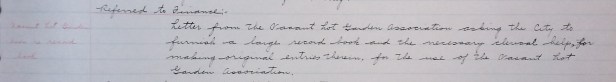 Referred to Finance:-
Vacant Lot Garden
book
Letter from the Vacant Lot Garden Association asking the City to
furnish a large record book and the necessary clerical help, for
making original entries therein, for the use of the Vacant Lot
Garden Association.